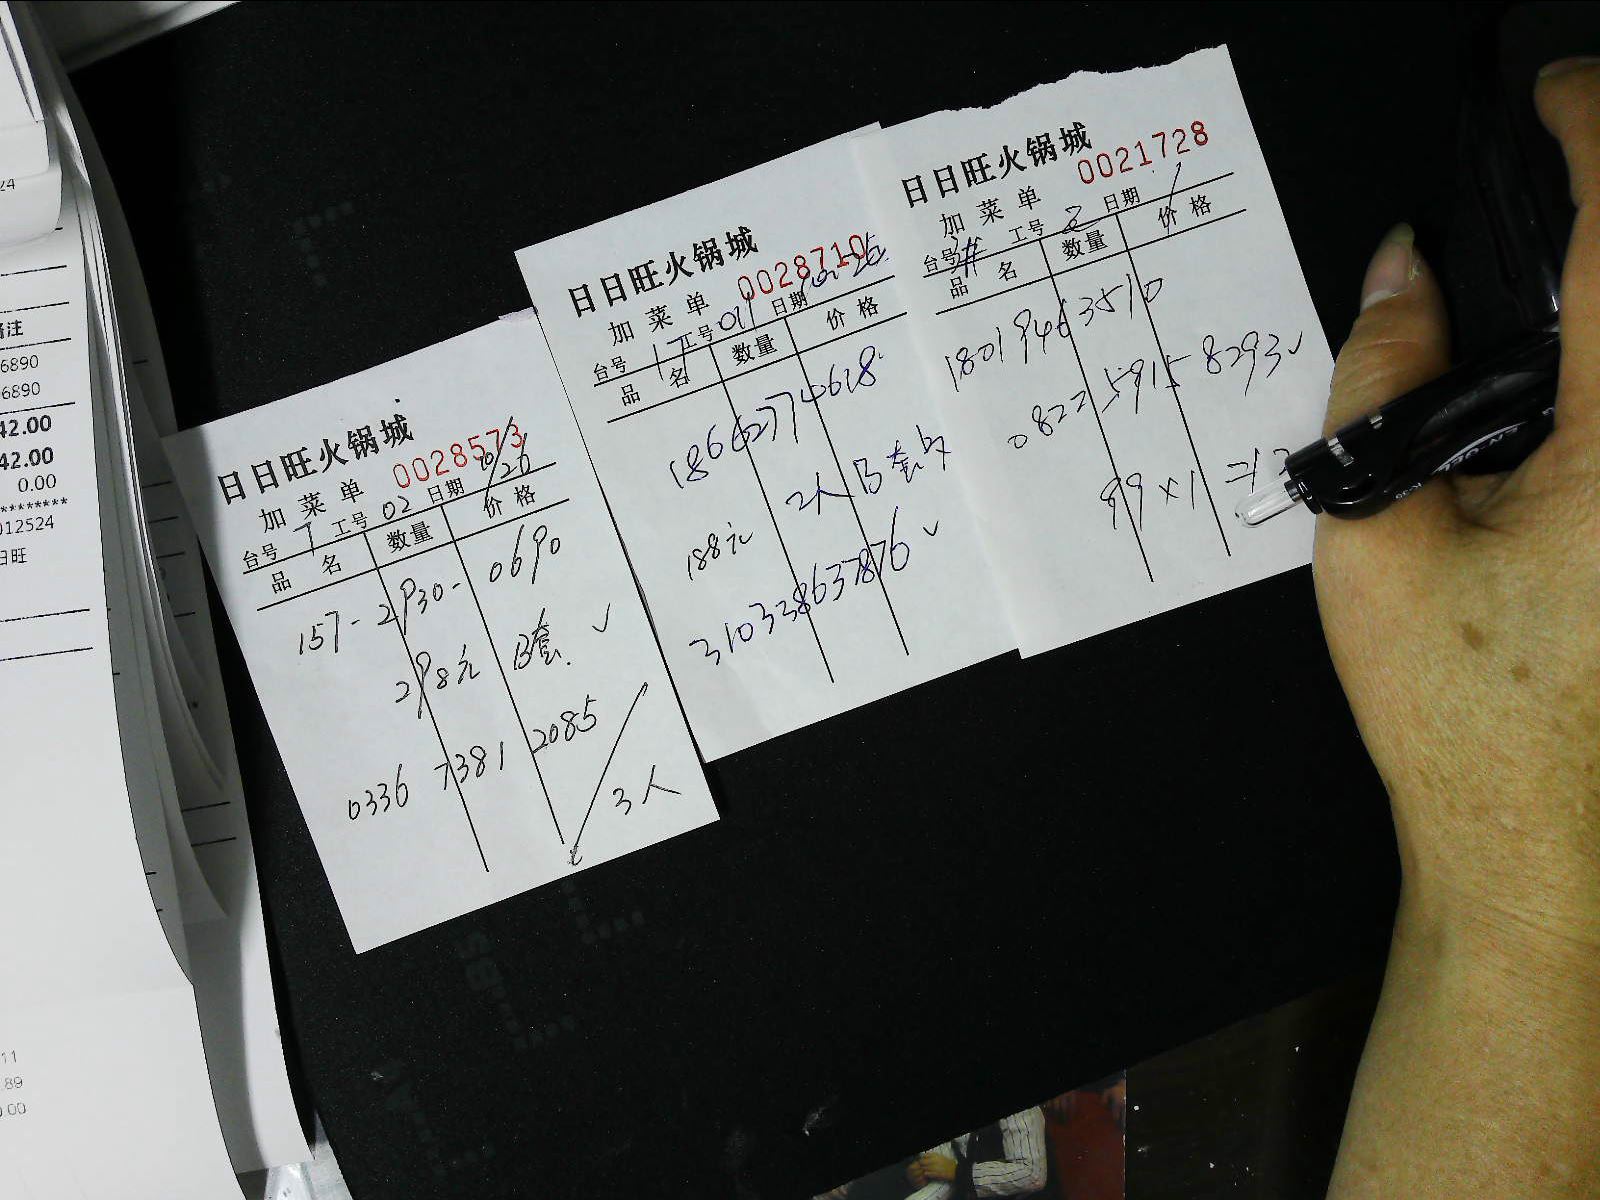 24
备注
6890
6890
42.00
42.00
0.00
********
012524
日旺
11
.89
0.00
日日旺火锅城
加菜单 0028573
台号 工号 02 日期 10/26
品名 数量 价格
157-2930-0690
298元 B套 ✓
0336 7381 2085
3人
日日旺火锅城
加菜单 0028710
台号 工号 011 日期
品名 数量 价格
18662774618
2人 B套
188元
310338637876 ✓
日日旺火锅城
加菜单 0021728
台号 工号 2 日期
品名 数量 价格
18019463510
0822 5915 8293 ✓
99×1